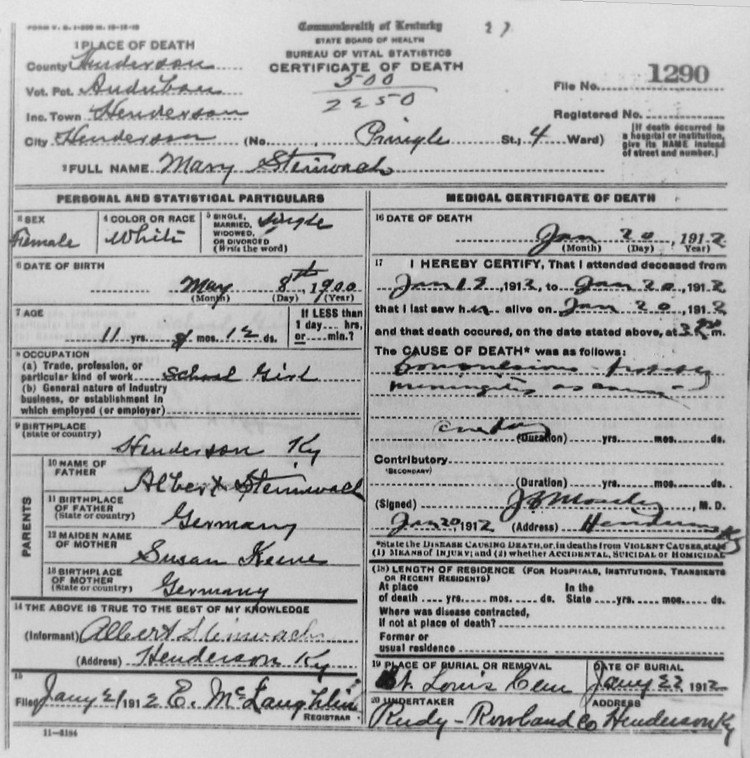 FORM V. S. 1-
Commonwealth of Kentucky
STATE BOARD OF HEALTH
BUREAU OF VITAL STATISTICS
CERTIFICATE OF DEATH
1 PLACE OF DEATH
County Henderson
Vot. Pct. Audubon
Inc. Town Henderson
City Henderson (No. , Pringle St.; 4 Ward)
500
2850
File No. 1290
Registered No.
[If death occurred in a hospital or institution, give its NAME instead of street and number.]
2 FULL NAME Mary Steinwach
PERSONAL AND STATISTICAL PARTICULARS
3 SEX
Female
4 COLOR OR RACE
White
5 SINGLE, MARRIED, WIDOWED, OR DIVORCED (Write the word)
Single
6 DATE OF BIRTH
May 8th, 1900
(Month) (Day) (Year)
7 AGE
11 yrs. 8 mos. 12 ds.
If LESS than 1 day.... hrs, or.... min.?
8 OCCUPATION
(a) Trade, profession, or
particular kind of work School Girl
(b) General nature of Industry
business, or establishment in
which employed (or employer)
9 BIRTHPLACE
(State or country)
Henderson Ky
PARENTS
10 NAME OF FATHER
Albert Steinwach
11 BIRTHPLACE OF FATHER
(State or country)
Germany
12 MAIDEN NAME OF MOTHER
Susan
13 BIRTHPLACE OF MOTHER
(State or country)
Germany
14 THE ABOVE IS TRUE TO THE BEST OF MY KNOWLEDGE
(Informant) Albert Steinwach
(Address) Henderson Ky
15
Filed Jany 21 1912 E. McLaughlin
REGISTRAR
11-5184
MEDICAL CERTIFICATE OF DEATH
16 DATE OF DEATH
Jan 20, 1912
(Month) (Day) (Year)
17 I HEREBY CERTIFY, That I attended deceased from
Jan , 1912, to Jan 20, 1912
that I last saw her alive on Jan 20, 1912
and that death occured, on the date stated above, at m.
The CAUSE OF DEATH* was as follows:
Convulsions - probably
meningitis as cause -
one day
(Duration) yrs. mos. ds.
Contributory
(SECONDARY)
(Duration) yrs. mos. ds.
(Signed) , M. D.
Jan 20, 1912 (Address) Henderson Ky
*State the DISEASE CAUSING DEATH, or, in deaths from VIOLENT CAUSES, state
(1) MEANS OF INJURY; and (2) whether ACCIDENTAL, SUICIDAL OR HOMICIDAL
(18) LENGTH OF RESIDENCE (FOR HOSPITALS, INSTITUTIONS, TRANSIENTS
OR RECENT RESIDENTS)
At place of death .... yrs. .... mos. .... ds.
In the State .... yrs. .... mos. .... ds.
Where was disease contracted,
If not at place of death?
Former or
usual residence
19 PLACE OF BURIAL OR REMOVAL
St. Louis Cem
DATE OF BURIAL
Jany 22 1912
20 UNDERTAKER
Rudy-Rowland Co
ADDRESS
Henderson Ky